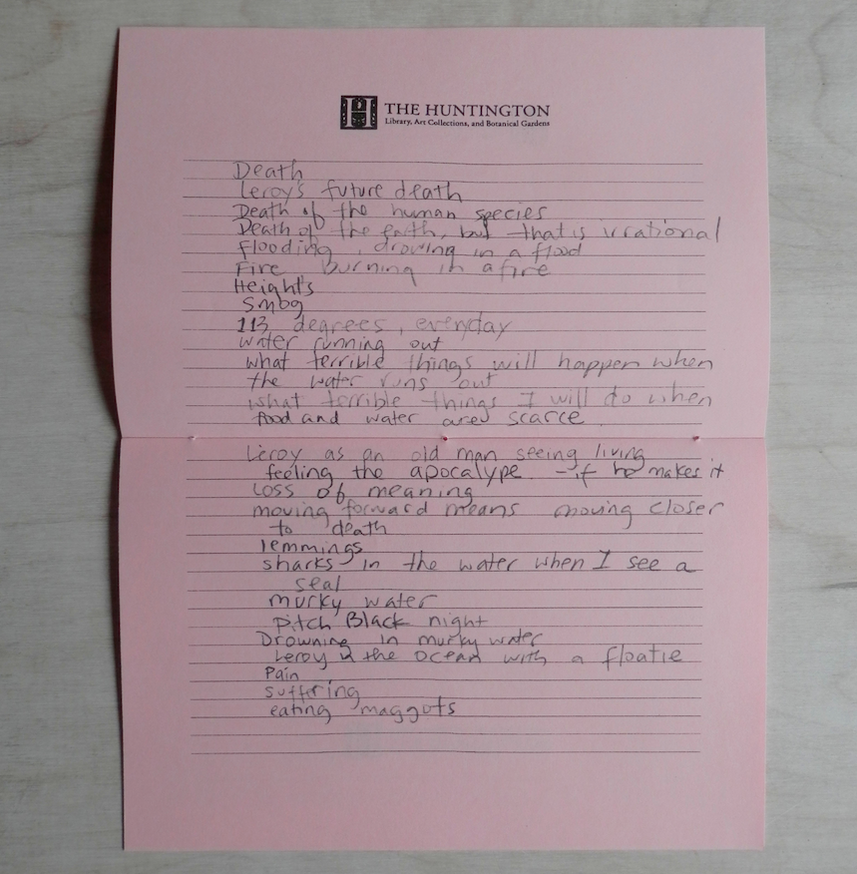 THE HUNTINGTON
Library, Art Collections, and Botanical Gardens
Death
Leroy's future death
Death of the human species
Death of the earth, but that is irrational
flooding, drowing in a flood
Fire burning in a fire
Height's
Smog
113 degrees, everyday
water running out
what terrible things will happen when
the water runs out
what terrible things I will do when
food and water are scarce
Leroy as an old man seeing living
feeling the apocalype - if he makes it
Loss of meaning
moving forward means moving closer
to death
lemmings
sharks in the water when I see a
seal
murky water
pitch Black night
Drowning in murky water
Leroy in the ocean with a floatie
Pain
suffering
eating maggots